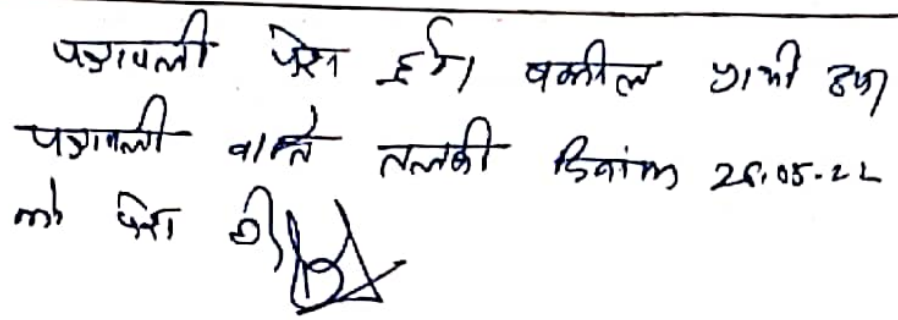 पत्रावली पेश हुई। वकील प्रार्थी उप०
पत्रावली वास्ते तलबी दिनांक 28.05.22
को पेश हो।